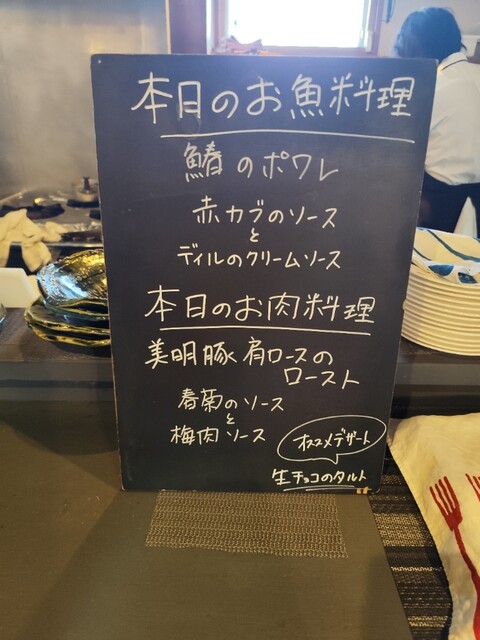 本日のお魚料理
鰆のポワレ
赤カブのソース
と
ディルのクリームソース
本日のお肉料理
美明豚 肩ロースの
ロースト
春菊のソース
と
梅肉ソース
オススメデザート
生チョコのタルト